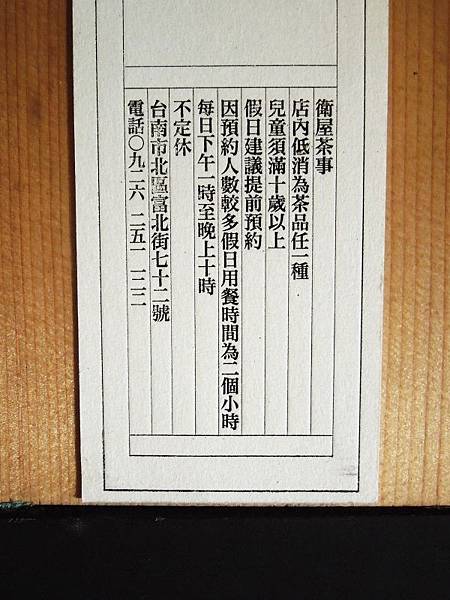 衛屋茶事
店內低消為茶品任一種
兒童須滿十歲以上
假日建議提前預約
因預約人數較多假日用餐時間為二個小時
每日下午一時至晚上十時
不定休
台南市北區富北街七十二號
電話〇九二六 二五一 一二二